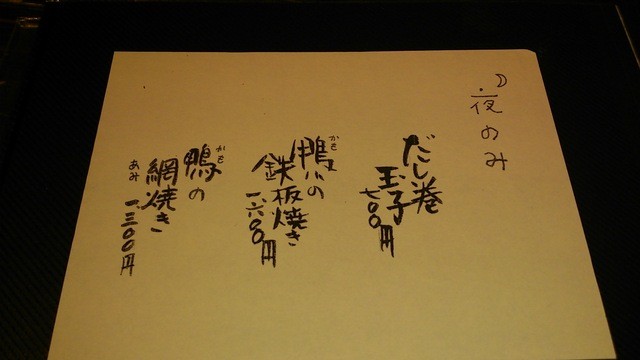 夜のみ
だし巻
玉子
七〇〇円
鴨の
かも
鉄板焼き
一六〇〇円
鴨の
かも
網焼き
あみ
一三〇〇円